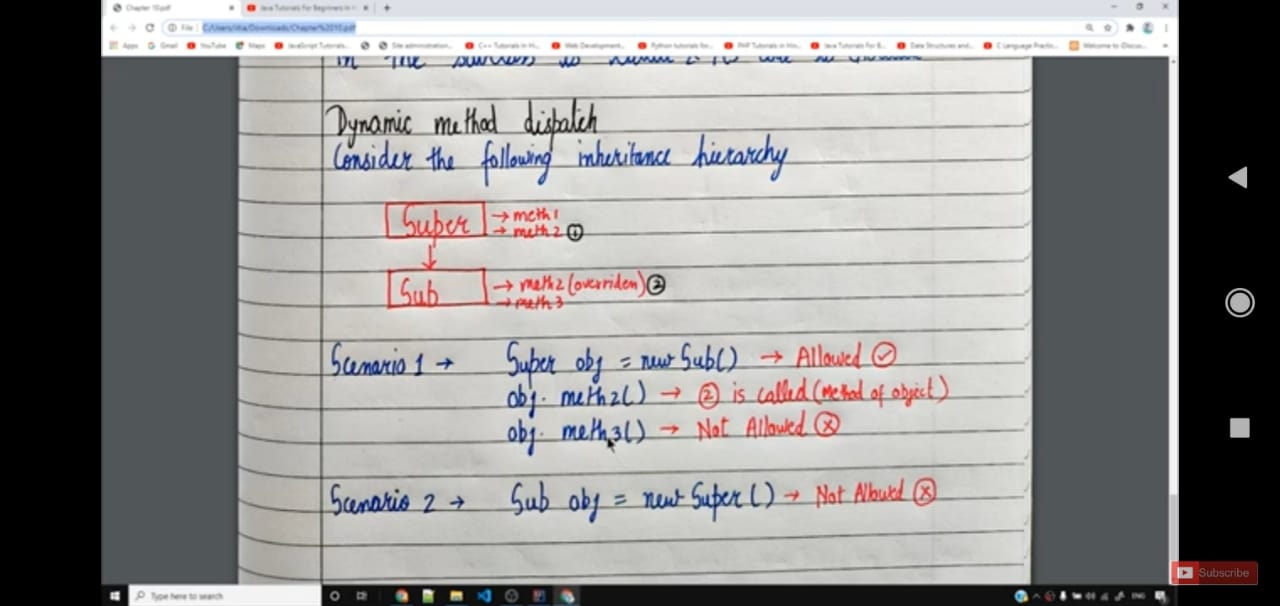 Chapter 10.pdf
Java Tutorials For Beginners In H
File
C:/Users/Idia/Downloads/Chapter%2010.pdf
Apps Gmail YouTube Maps JavaScript Tutorials... Site administration... C++ Tutorials In Hi... Web Development... Python tutorials for... PHP Tutorials in Hin... Java Tutorials For B... Data Structures and... C Language Practic... Welcome to Discus...
Dynamic method dispatch
Consider the following inheritance hierarchy
Super → meth1
→ meth2 ①
↓
Sub → meth2 (overriden) ②
→ meth3
Scenario 1 → Super obj = new Sub() → Allowed ✓
obj. meth2() → ② is called (method of object)
obj. meth3() → Not Allowed ⓧ
Scenario 2 → Sub obj = new Super() → Not Allowed ⓧ
Subscribe
Type here to search
ENG